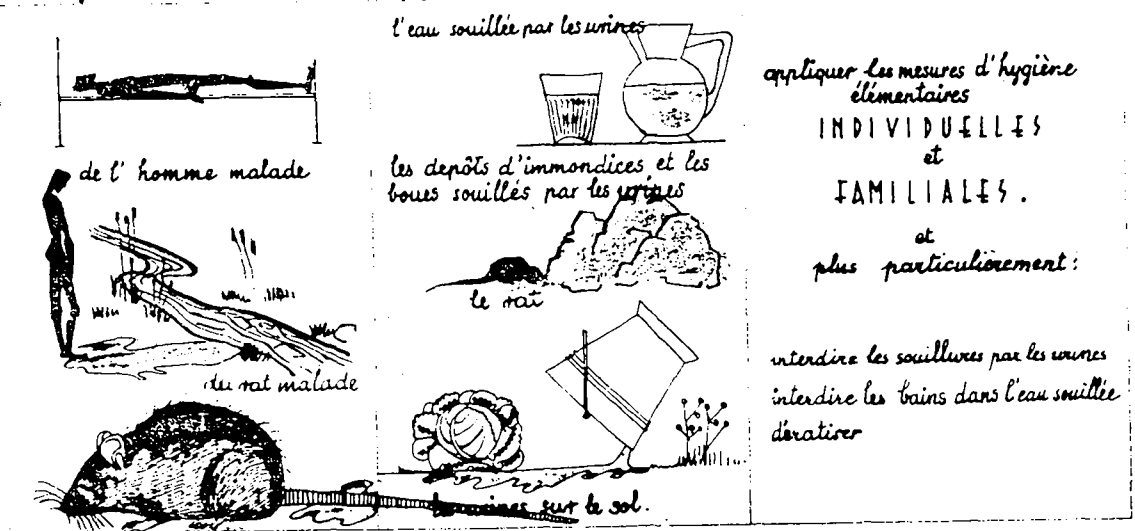 de l' homme malade
du rat malade
l'eau souillée par les urines
les depôts d'immondices et les
boues souillés par les urines
le rat
les urines sur le sol.
appliquer les mesures d'hygiène
élémentaires
INDIVIDUELLES
et
FAMILIALES.
et
plus particulièrement:
interdire les souillures par les urines
interdire les bains dans l'eau souillée
dératiser